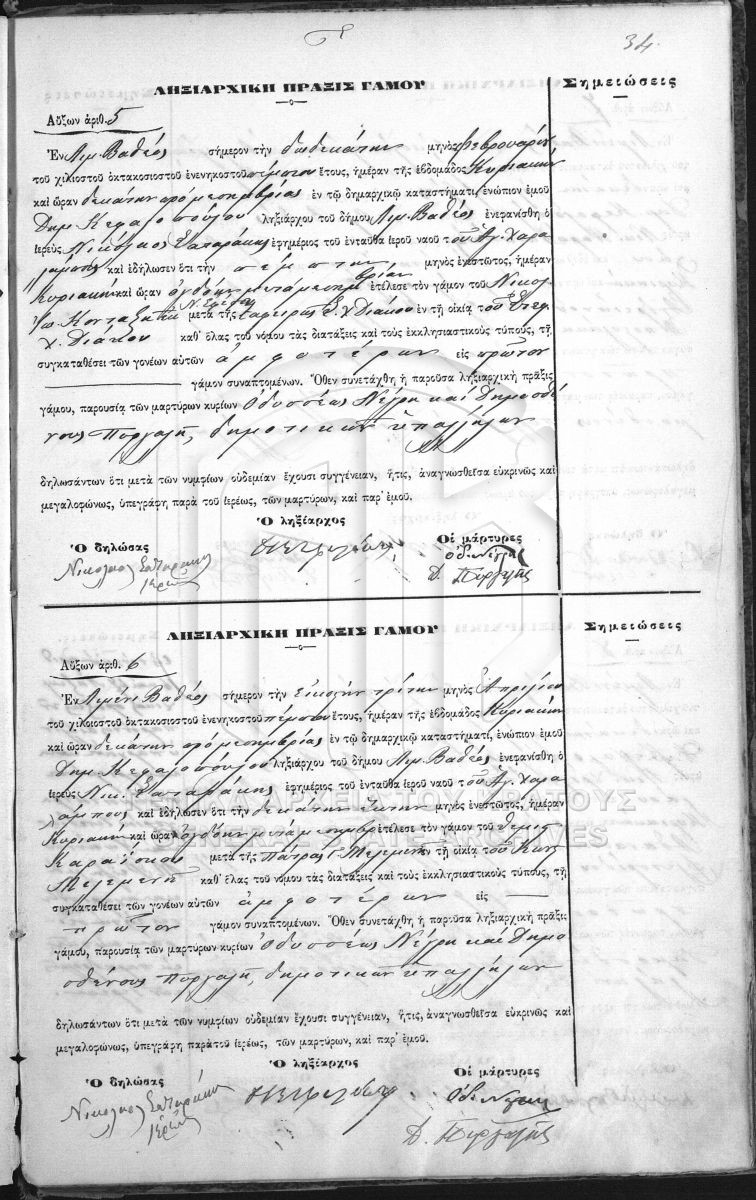 34.
ΛΗΞΙΑΡΧΙΚΗ ΠΡΑΞΙΣ ΓΑΜΟΥ
Σημειώσεις
Αὔξων ἀριθ. 5
Ἐν Λιμ. Βαθέος σήμερον τὴν δωδεκάτην μηνὸς Φεβρουαρίου
τοῦ χιλιοστοῦ ὀκτακοσιοστοῦ ἐνενηκοστοῦ πέμπτου ἔτους, ἡμέραν τῆς ἑβδομάδος Κυριακὴν
καὶ ὥραν δεκάτην πρὸ μεσημβρίας ἐν τῷ δημαρχικῷ καταστήματι, ἐνώπιον ἐμοῦ
Δημ. Κεφαλοπούλου ληξιάρχου τοῦ δήμου Λιμ. Βαθέος ἐνεφανίσθη ὁ
ἱερεὺς Νικόλαος Σαπαράκης ἐφημέριος τοῦ ἐνταῦθα ἱεροῦ ναοῦ τοῦ Ἁγ. Χαρα
λάμπους καὶ ἐδήλωσεν ὅτι τὴν πέμπτην μηνὸς ἐνεστῶτος, ἡμέραν
Κυριακὴν καὶ ὥραν ὀγδόην μετὰ μεσημβρίαν ἐτέλεσε τὸν γάμον τοῦ Νικολ.
μετὰ τῆς Χ Διάκου ἐν τῇ οἰκίᾳ τοῦ Στεφ.
Χ. Διάκου καθ' ὅλας τοῦ νόμου τὰς διατάξεις καὶ τοὺς ἐκκλησιαστικοὺς τύπους, τῇ
συγκαταθέσει τῶν γονέων αὐτῶν ἀμφοτέρων εἰς πρῶτον
γάμον συναπτομένων. Ὅθεν συνετάχθη ἡ παροῦσα ληξιαρχικὴ πρᾶξις
γάμου, παρουσίᾳ τῶν μαρτύρων κυρίων Ὀδυσσέως Νέγρη καὶ Δημοσθέ
νους Πυργαλῆ, δημοτικῶν ὑπαλλήλων
δηλωσάντων ὅτι μετὰ τῶν νυμφίων οὐδεμίαν ἔχουσι συγγένειαν, ἥτις, ἀναγνωσθεῖσα εὐκρινῶς καὶ
μεγαλοφώνως, ὑπεγράφη παρὰ τοῦ ἱερέως, τῶν μαρτύρων, καὶ παρ' ἐμοῦ.
Ὁ ληξίαρχος
Ὁ δηλώσας
Οἱ μάρτυρες
Νικόλαος Σαπαράκης
Ἱερεύς
Ὀδ. Νέγρης
Δ. Πυργαλῆς
ΛΗΞΙΑΡΧΙΚΗ ΠΡΑΞΙΣ ΓΑΜΟΥ
Σημειώσεις
Αὔξων ἀριθ. 6
Ἐν Λιμένι Βαθέος σήμερον τὴν εἰκοστὴν τρίτην μηνὸς Ἀπριλίου
τοῦ χιλιοστοῦ ὀκτακοσιοστοῦ ἐνενηκοστοῦ πέμπτου ἔτους, ἡμέραν τῆς ἑβδομάδος Κυριακὴν
καὶ ὥραν δεκάτην πρὸ μεσημβρίας ἐν τῷ δημαρχικῷ καταστήματι, ἐνώπιον ἐμοῦ
Δημ. Κεφαλοπούλου ληξιάρχου τοῦ δήμου Λιμ. Βαθέος ἐνεφανίσθη ὁ
ἱερεὺς Νικ. Σαπαράκης ἐφημέριος τοῦ ἐνταῦθα ἱεροῦ ναοῦ τοῦ Ἁγ. Χαρα
λάμπους καὶ ἐδήλωσεν ὅτι τὴν δεκάτην ἕκτην μηνὸς ἐνεστῶτος, ἡμέραν
Κυριακὴν καὶ ὥραν ὀγδόην μετὰ μεσημβρ ἐτέλεσε τὸν γάμον τοῦ Θεμισ.
Καραΐσκου μετὰ τῆς Πάτρας Μελεμενῆ ἐν τῇ οἰκίᾳ τοῦ Κων.
Μελεμενῆ καθ' ὅλας τοῦ νόμου τὰς διατάξεις καὶ τοὺς ἐκκλησιαστικοὺς τύπους, τῇ
συγκαταθέσει τῶν γονέων αὐτῶν ἀμφοτέρων εἰς
πρῶτον γάμον συναπτομένων. Ὅθεν συνετάχθη ἡ παροῦσα ληξιαρχικὴ πρᾶξις
γάμου, παρουσίᾳ τῶν μαρτύρων κυρίων Ὀδυσσέως Νέγρη καὶ Δημο
σθένους Πυργαλῆ, δημοτικῶν ὑπαλλήλων
δηλωσάντων ὅτι μετὰ τῶν νυμφίων οὐδεμίαν ἔχουσι συγγένειαν, ἥτις, ἀναγνωσθεῖσα εὐκρινῶς καὶ
μεγαλοφώνως, ὑπεγράφη παρὰ τοῦ ἱερέως, τῶν μαρτύρων, καὶ παρ' ἐμοῦ.
Ὁ ληξίαρχος
Ὁ δηλώσας
Οἱ μάρτυρες
Νικόλαος Σαπαράκης
Ἱερεύς
Ὀδ. Νέγρης
Δ. Πυργαλῆς